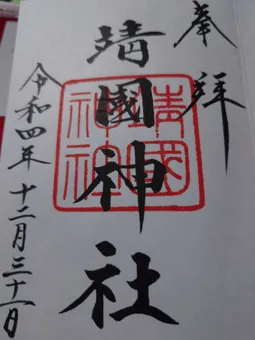 奉拝
靖國神社
靖國神社
令和四年十二月三十一日